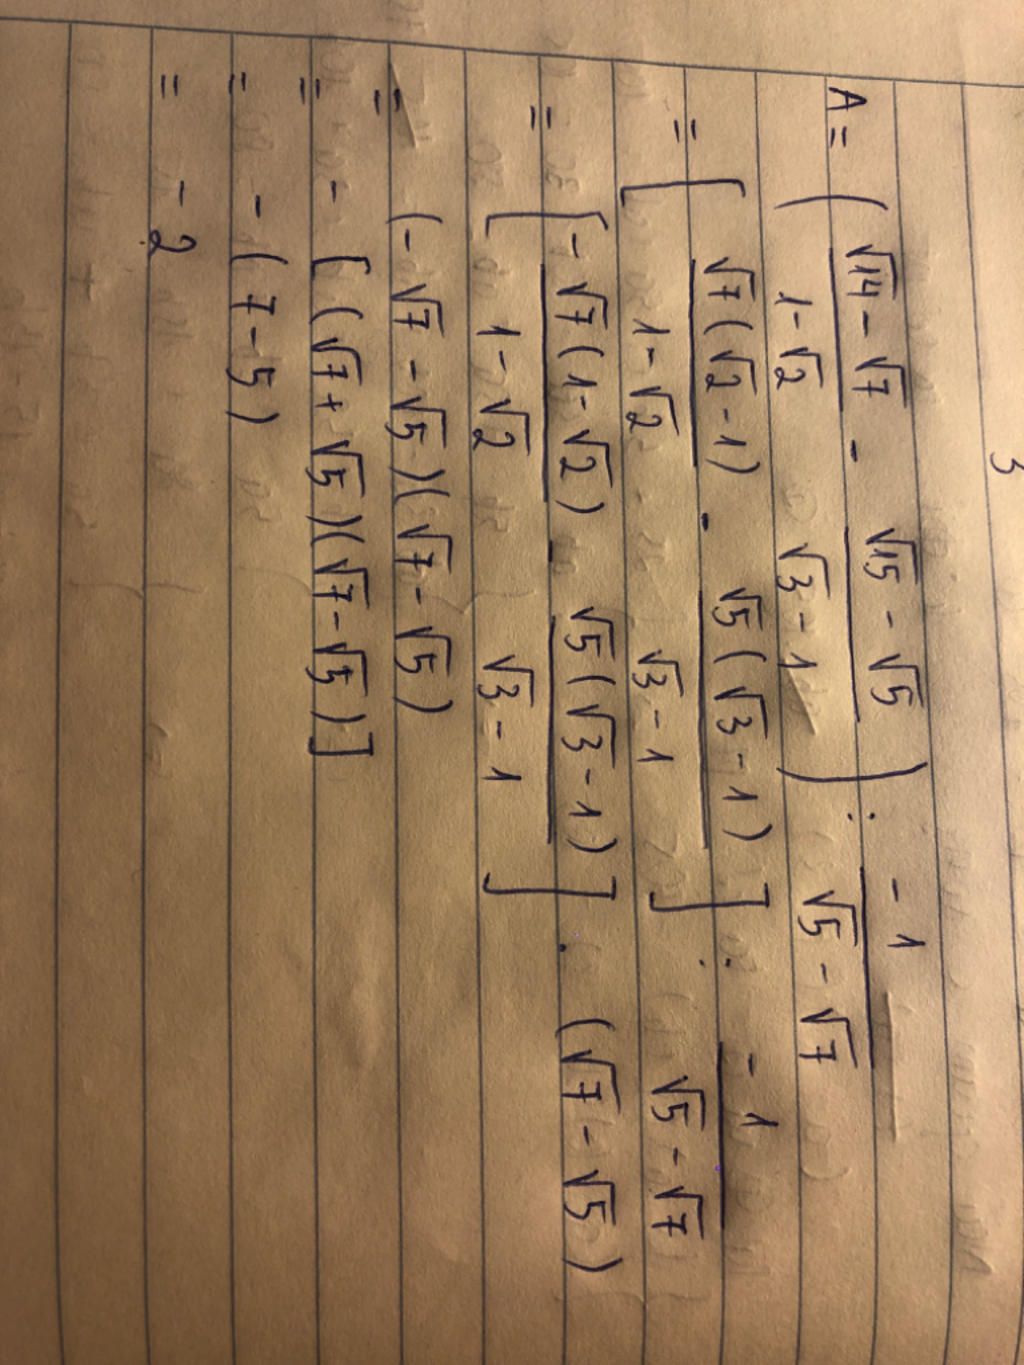 3
A = ( (√14 - √7)/(1 - √2) - (√15 - √5)/(√3 - 1) ) : (-1)/(√5 - √7)
= [ √7(√2 - 1)/(1 - √2) - √5(√3 - 1)/(√3 - 1) ] : (-1)/(√5 - √7)
= [ -√7(1 - √2)/(1 - √2) - √5(√3 - 1)/(√3 - 1) ] . (√7 - √5)
= (-√7 - √5)(√7 - √5)
= - [(√7 + √5)(√7 - √5)]
= - (7 - 5)
= - 2